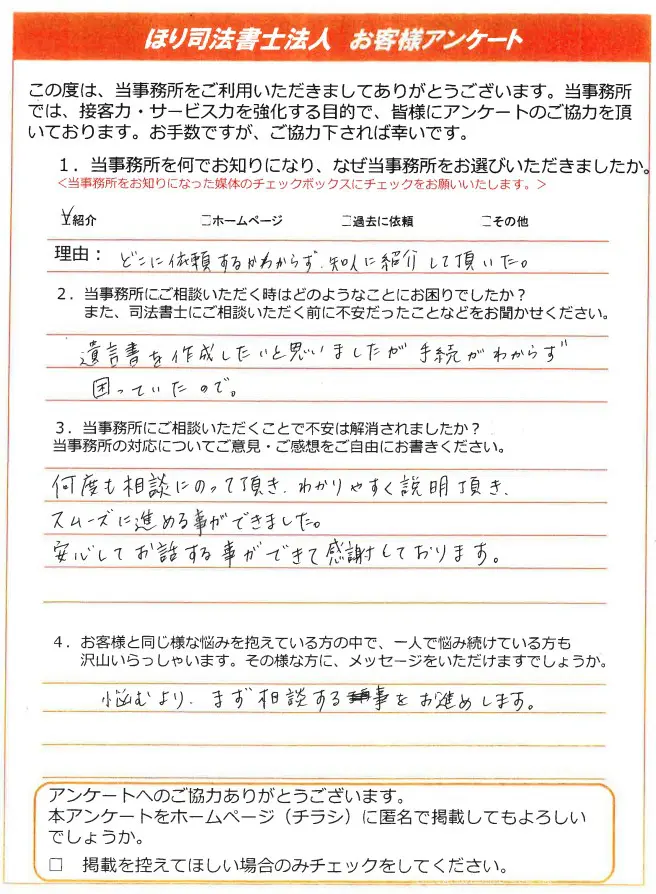 ほり司法書士法人 お客様アンケート
この度は、当事務所をご利用いただきましてありがとうございます。当事務所
では、接客力・サービス力を強化する目的で、皆様にアンケートのご協力を頂
いております。お手数ですが、ご協力下されば幸いです。
１．当事務所を何でお知りになり、なぜ当事務所をお選びいただきましたか。
＜当事務所をお知りになった媒体のチェックボックスにチェックをお願いいたします。＞
☑紹介 □ホームページ □過去に依頼 □その他
理由： どこに依頼するかわからず、知人に紹介して頂いた。
２．当事務所にご相談いただく時はどのようなことにお困りでしたか？
また、司法書士にご相談いただく前に不安だったことなどをお聞かせください。
遺言書を作成したいと思いましたが手続がわからず
困っていたので。
３．当事務所にご相談いただくことで不安は解消されましたか？
当事務所の対応についてご意見・ご感想をご自由にお書きください。
何度も相談にのって頂き、わかりやすく説明頂き、
スムーズに進める事ができました。
安心してお話する事ができて感謝しております。
４．お客様と同じ様な悩みを抱えている方の中で、一人で悩み続けている方も
沢山いらっしゃいます。その様な方に、メッセージをいただけますでしょうか。
悩むより、まず相談する事をお進めします。
アンケートへのご協力ありがとうございます。
本アンケートをホームページ（チラシ）に匿名で掲載してもよろしい
でしょうか。
□ 掲載を控えてほしい場合のみチェックをしてください。